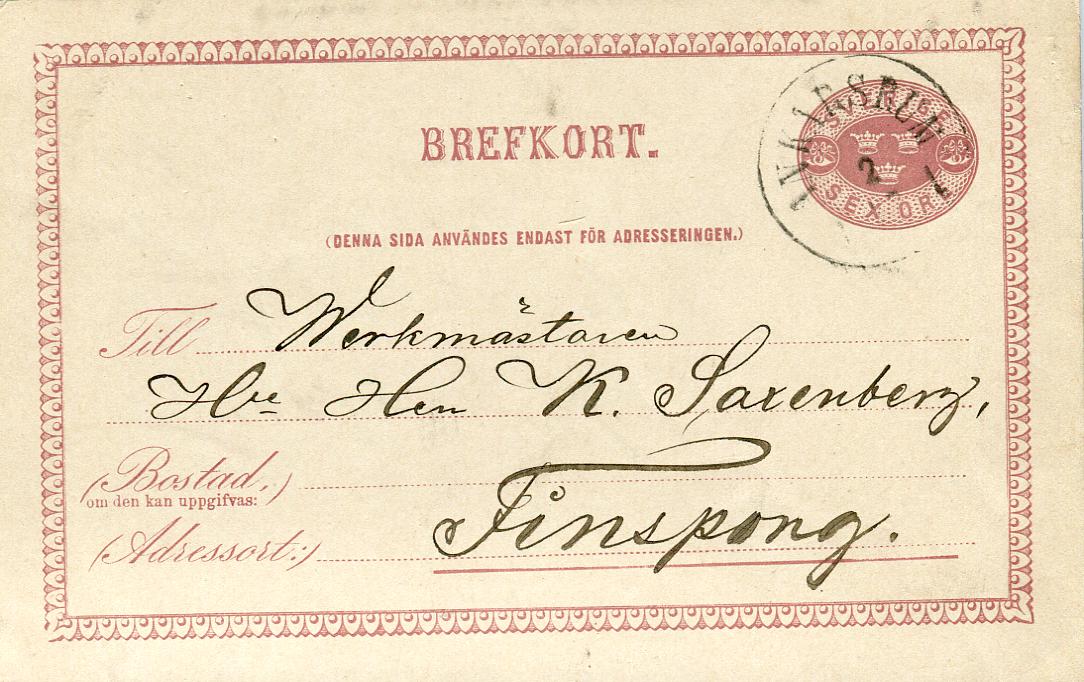 BREFKORT.
SVERIGE
SEX ÖRE
ANKARSRUM
2 1
(DENNA SIDA ANVÄNDES ENDAST FÖR ADRESSERINGEN.)
Till Werkmästaren
Herr K. Saxenberg,
(Bostad,)
om den kan uppgifvas:
(Adressort:) Finspong.